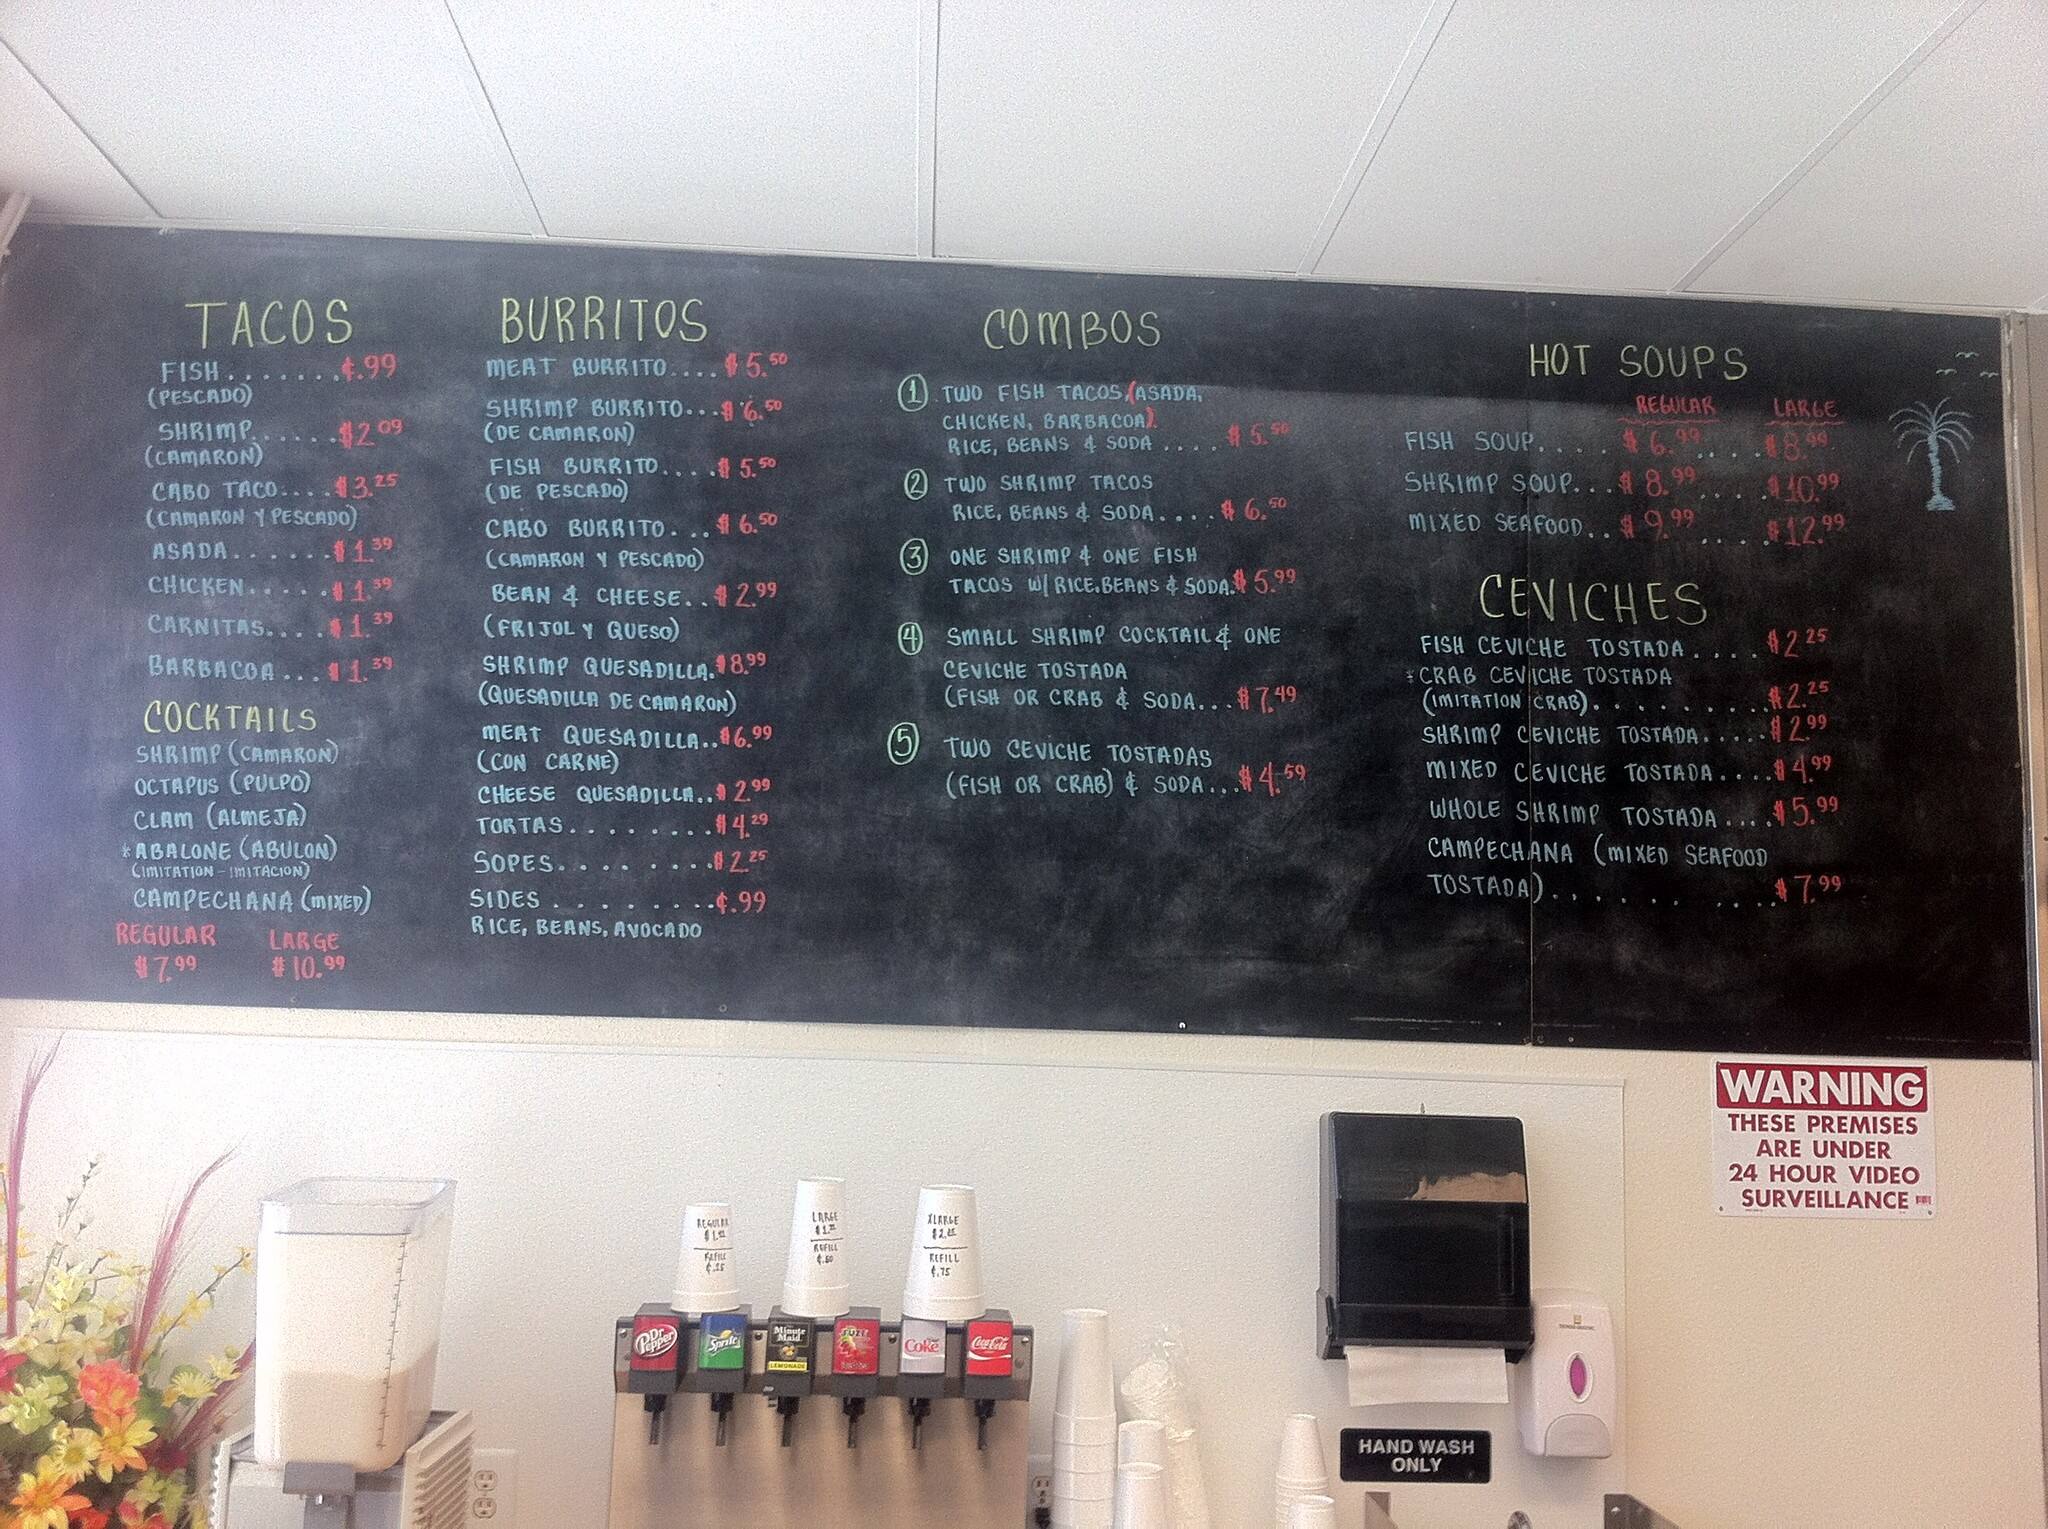 TACOS
FISH.......¢.99
(PESCADO)
SHRIMP......$2.09
(CAMARON)
CABO TACO....$3.25
(CAMARON Y PESCADO)
ASADA.......$1.39
CHICKEN.....$1.39
CARNITAS....$1.39
BARBACOA...$1.39
COCKTAILS
SHRIMP (CAMARON)
OCTAPUS (PULPO)
CLAM (ALMEJA)
*ABALONE (ABULON)
(IMITATION-IMITACION)
CAMPECHANA (MIXED)
REGULAR LARGE
$7.99 $10.99
BURRITOS
MEAT BURRITO....$5.50
SHRIMP BURRITO...$6.50
(DE CAMARON)
FISH BURRITO....$5.50
(DE PESCADO)
CABO BURRITO...$6.50
(CAMARON Y PESCADO)
BEAN & CHEESE..$2.99
(FRIJOL Y QUESO)
SHRIMP QUESADILLA.$8.99
(QUESADILLA DE CAMARON)
MEAT QUESADILLA..$6.99
(CON CARNE)
CHEESE QUESADILLA..$2.99
TORTAS........$4.29
SOPES........$2.25
SIDES........¢.99
RICE, BEANS, AVOCADO
COMBOS
1 TWO FISH TACOS,(ASADA,
CHICKEN, BARBACOA).
RICE, BEANS & SODA....$5.50
2 TWO SHRIMP TACOS
RICE, BEANS & SODA....$6.50
3 ONE SHRIMP & ONE FISH
TACOS W/ RICE,BEANS & SODA.$5.99
4 SMALL SHRIMP COCKTAIL & ONE
CEVICHE TOSTADA
(FISH OR CRAB & SODA...$7.49
5 TWO CEVICHE TOSTADAS
(FISH OR CRAB) & SODA...$4.59
HOT SOUPS
REGULAR LARGE
FISH SOUP....$6.99....$8.99
SHRIMP SOUP...$8.99....$10.99
MIXED SEAFOOD..$9.99....$12.99
CEVICHES
FISH CEVICHE TOSTADA....$2.25
*CRAB CEVICHE TOSTADA
(IMITATION CRAB).........$2.25
SHRIMP CEVICHE TOSTADA.....$2.99
MIXED CEVICHE TOSTADA....$4.99
WHOLE SHRIMP TOSTADA....$5.99
CAMPECHANA (MIXED SEAFOOD
TOSTADA)..........$7.99
WARNING
THESE PREMISES
ARE UNDER
24 HOUR VIDEO
SURVEILLANCE
REGULAR
REFILL
¢.25
LARGE
REFILL
XLARGE
REFILL
¢.75
Dr Pepper
Sprite
Minute Maid
LEMONADE
FUZE
Coke
Coca-Cola
HAND WASH
ONLY